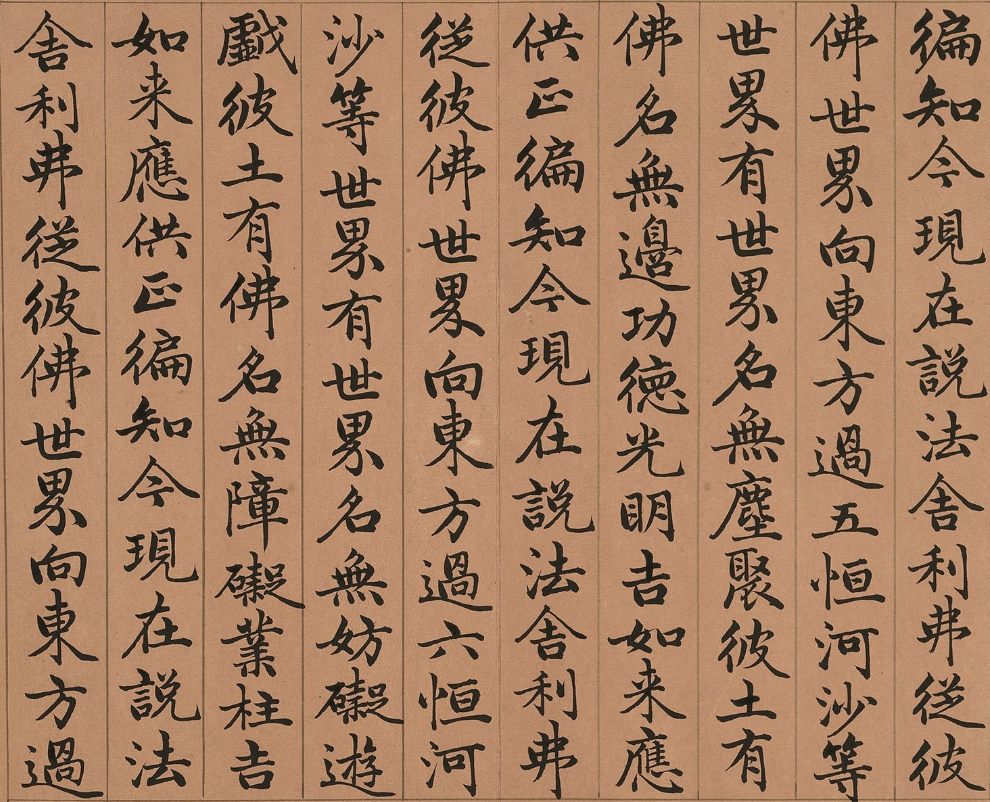 徧知今現在説法舎利弗従彼
佛世界向東方過五恒河沙等
世界有世界名無塵聚彼土有
佛名無邊功徳光明吉如来應
供正徧知今現在説法舎利弗
従彼佛世界向東方過六恒河
沙等世界有世界名無妨礙遊
戯彼土有佛名無障礙業柱吉
如来應供正徧知今現在説法
舎利弗従彼佛世界向東方過